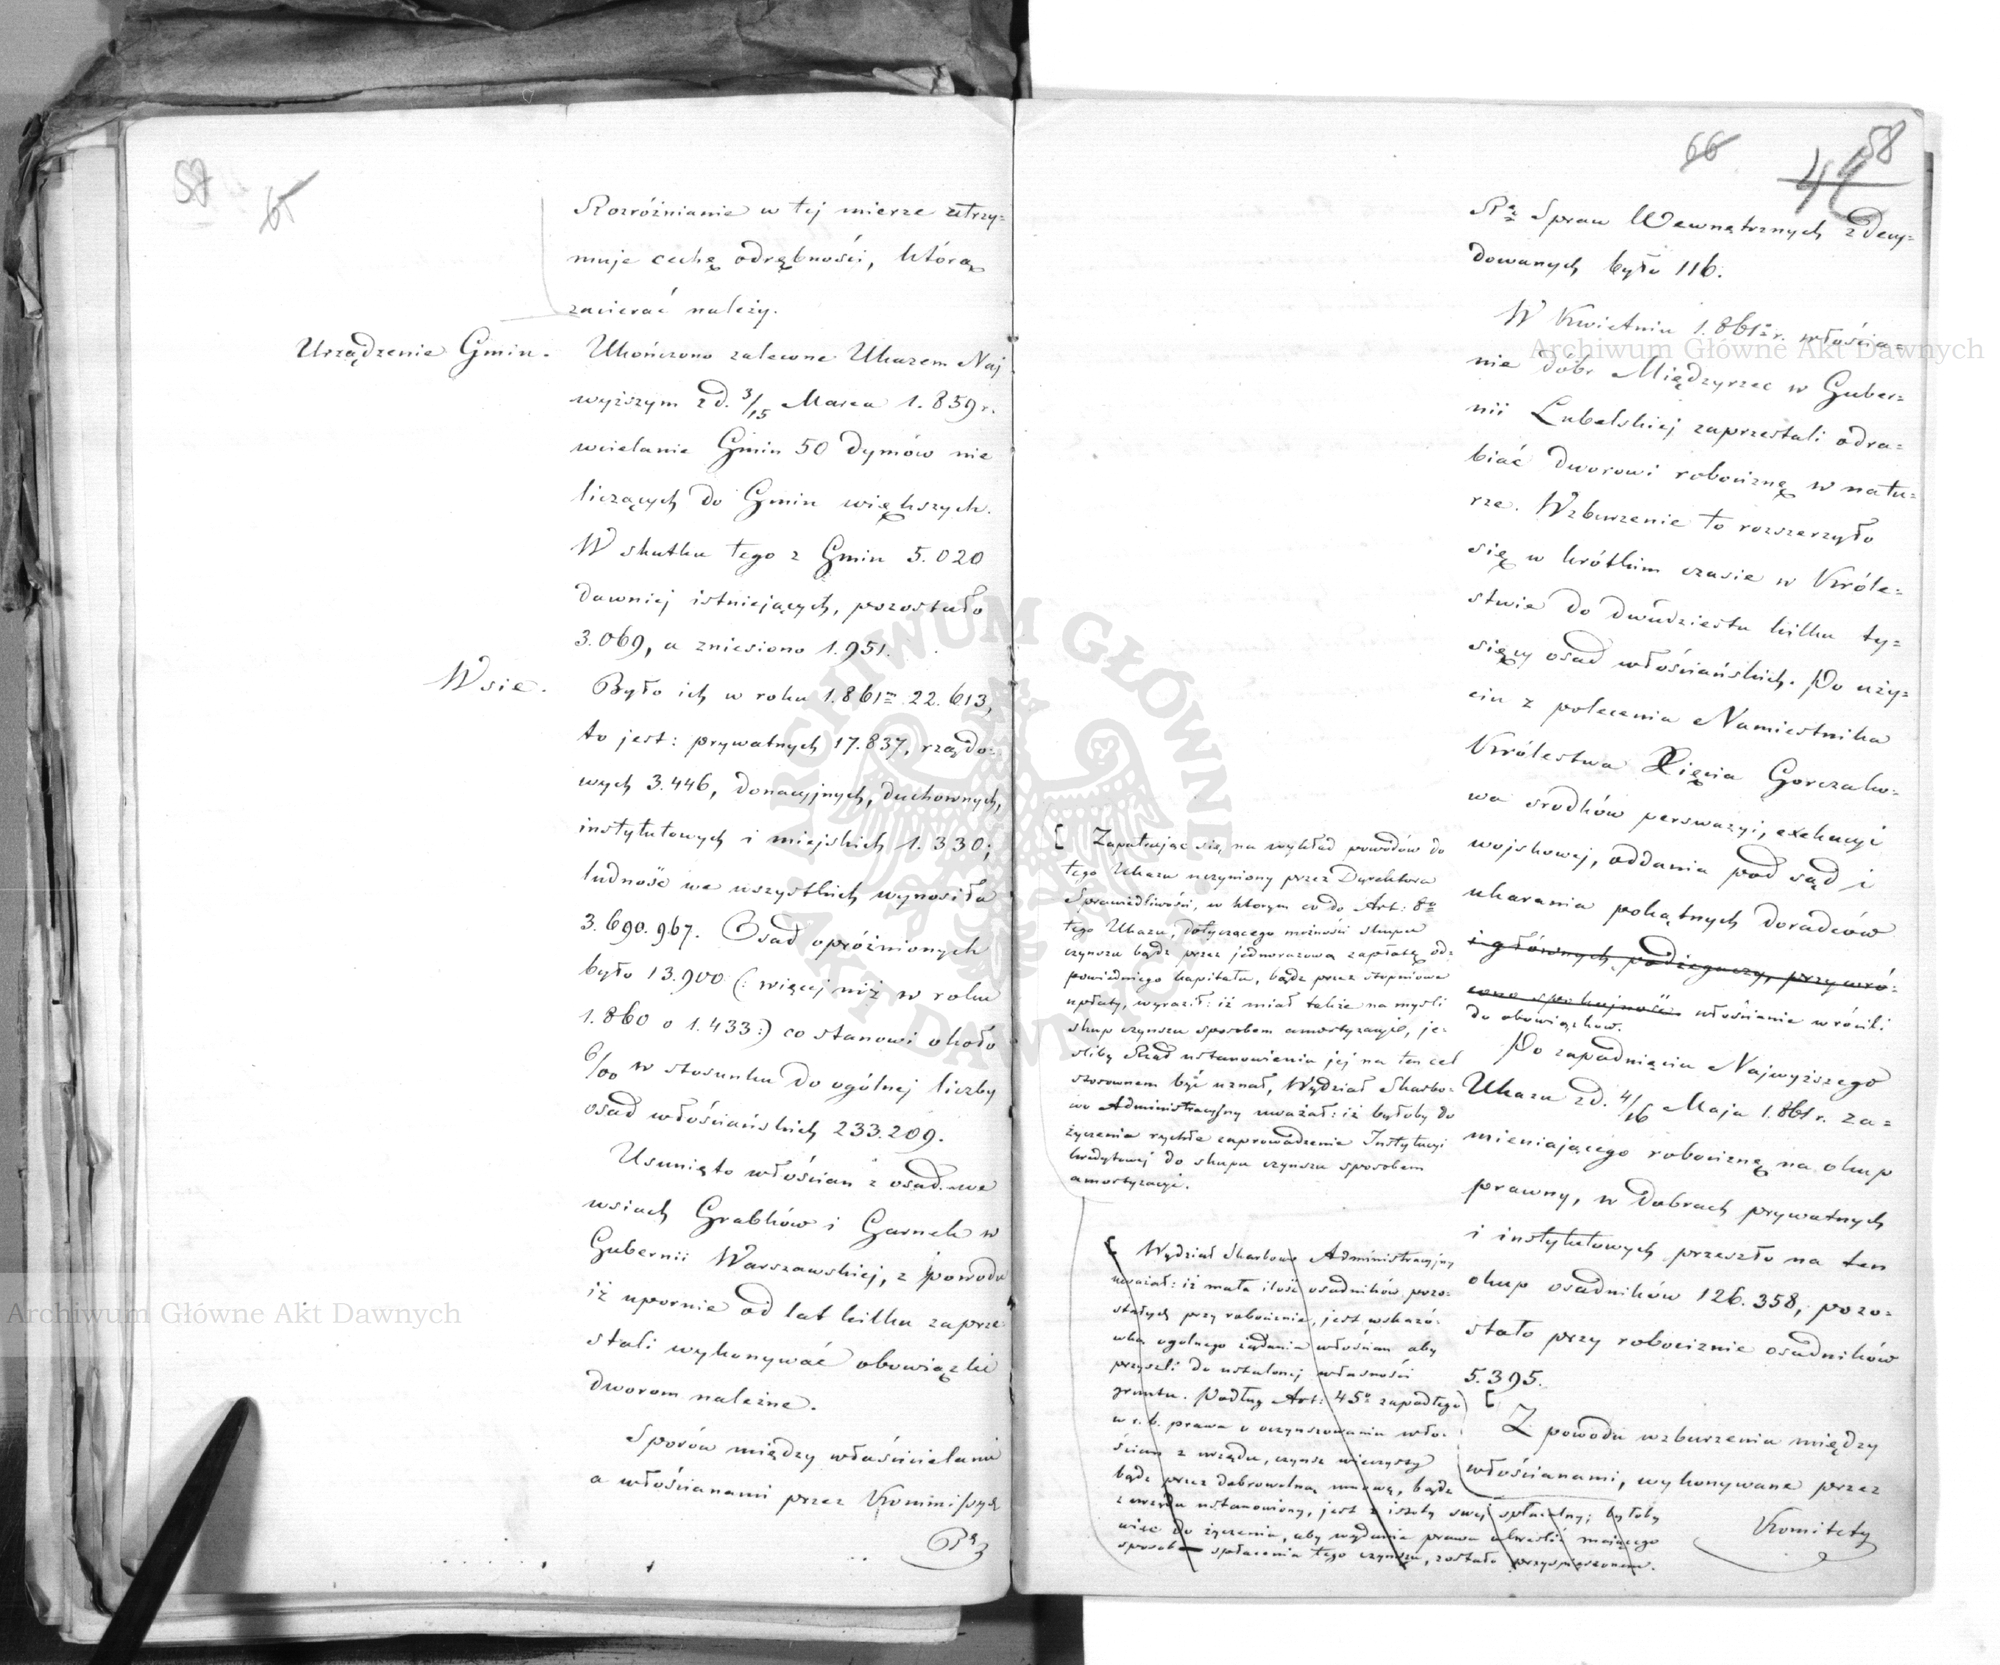 57
65
Rozróżnianie w tej mierze utrzy=
muje cechę odrębności, którą
zacierać należy.
Urządzenie Gmin.
Ukończono zalecone Ukazem Naj
wyższym z d. 3/15 Marca 1.859 r.
wcielanie Gmin 50 dymów nie
liczących do Gmin większych.
W skutku tego z Gmin 5.020
dawniej istniejących, pozostało
3.069, a zniesiono 1.951.
Wsie.
Było ich w roku 1.861m 22.613,
to jest: prywatnych 17.837, rządo=
wych 3.446, donacyjnych, duchownych,
instytutowych i miejskich 1.330;
ludność we wszystkich wynosiła
3.690.967. Osad opróżnionych
było 13.900 (: więcej niż w roku
1.860 o 1.433:) co stanowi około
6/00 w stosunku do ogólnej liczby
osad włościańskich 233.209.
Usunięto włościan z osad we
wsiach Grabków i Garnek w
Gubernii Warszawskiej, z powodu
iż upornie od lat kilku zaprze
stali wykonywać obowiązki
dworom należne.
Sporów między właścicielami
a włościanami przez Kommissyę
Rz
66
58
Rz Spraw Wewnętrznych zdecy=
dowanych było 116.
W Kwietniu 1.861 r. włościa=
nie dóbr Międzyrzec w Guber=
nii Lubelskiej zaprzestali odra=
biać dworowi robociznę w natu=
rze. Wzburzenie to rozszerzyło
się w krótkim czasie w Króle=
stwie do dwudziestu kilku ty=
sięcy osad włościańskich. Po uży=
ciu z polecenia Namiestnika
Królestwa Xięcia Gorczako=
wa środków perswazyi, exekucyi
wojskowej, oddania pod sąd i
ukarania pokątnych doradców
i głównych podżegaczy, przywró=
cono spokojność włościanie wrócili
do obowiązków.
Po zapadnięciu Najwyższego
Ukazu z d. 4/16 Maja 1.861 r. za=
mieniającego robociznę na okup
prawny, w dobrach prywatnych
i instytutowych przeszło na ten
okup osadników 126.358, pozo=
stało przy robociznie osadników
5.395.
Z powodu wzburzenia między
włościanami, wykonywane przez
Komitety
[ Zapatrując się na wykład powodów do
tego Ukazu uczyniony przez Dyrektora
Sprawiedliwości, w którym co do Art: 8o
tego Ukazu, dotyczącego możności skupu
czynszu bądź przez jednorazową zapłatę od=
powiedniego kapitału, bądź przez stopniowe
upłaty, wyraził: iż miał także na myśli
skup czynszu sposobem amortyzacyi, je=
śliby Rząd ustanowienia jej na ten cel
stosownem być uznał, Wydział Skarbo=
wo Administracyjny uważał: iż byłoby do
życzenia rychłe zaprowadzenie Instytucyi
kredytowej do skupu czynszu sposobem
amortyzacyi.
[ Wydział Skarbowo Administracyjny
uważał: iż mała ilość osadników pozo=
stałych przy robociznie, jest wskazów=
ką ogólnego żądania włościan aby
przyszli do ustalonej własności
gruntu. Podług Art: 45o zapadłego
w r. b. prawa o oczynszowaniu wło=
ścian z urzędu, czynsz wieczysty
bądź przez dobrowolną umowę, bądź
z urzędu ustanowiony, jest z istoty swej spłacalny; byłoby
więc do życzenia, aby wydanie prawa określić mającego
sposób spłacenia tego czynszu, zostało przyspieszonem.
Archiwum Główne Akt Dawnych
Archiwum Główne Akt Dawnych
ARCHIWUM GŁÓWNE
AKT DAWNYCH